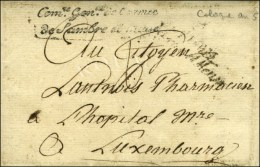 Com.re Gen.l de l'armée
de Sambre et Meuse
Cologne
Au Citoyen
Pharmacien
a l'hopital M.re
a Luxembourg